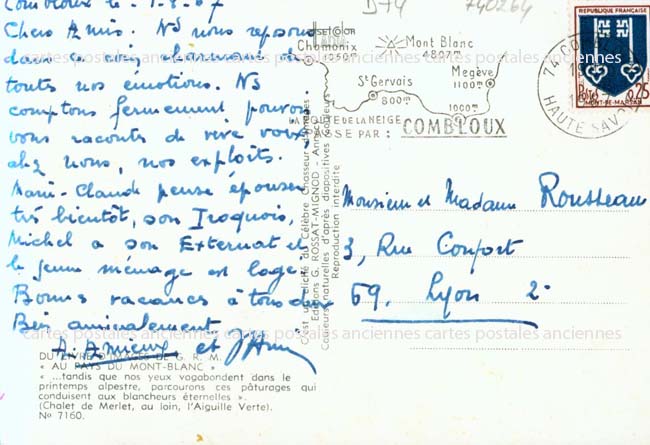 Combloux le 1-8-67
Chers Amis. Ns nous reposons
dans ce site charmant de
toutes nos émotions. Ns
comptons fermement pouvoir
vous raconter de vive voix,
chez nous, nos exploits.
Marie-Claude pense épouser
très bientôt, son Iroquois,
Michel a son Externat et
le jeune ménage est logé.
Bonnes vacances à tous deux
Bien amicalement.
et
D74
740264
Chamonix
1050m
Mont Blanc
4807m
St Gervais
800m
Megève
1100m
1000m
LA ROUTE DE LA NEIGE
PASSE PAR : COMBLOUX
74 COMBLOUX
HAUTE SAVOIE
REPUBLIQUE FRANÇAISE
Postes 0,25
MONT-DE-MARSAN
Monsieur et Madame Rousseau
3, Rue Confort
69. Lyon 2e
C'est un cliché du Célèbre Chasseur d'Images
Editions G. ROSSAT-MIGNOD - Annecy
Couleurs naturelles d'après diapositives couleurs
Reproduction interdite
cartes postales anciennes cartes postales anciennes cartes postales anciennes
cartes postales anciennes cartes postales anciennes cartes postales anciennes
DU LIVRE D'IMAGES DE G. R. M.
« AU PAYS DU MONT-BLANC »
« ...tandis que nos yeux vagabondent dans le
printemps alpestre, parcourons ces pâturages qui
conduisent aux blancheurs éternelles ».
(Chalet de Merlet, au loin, l'Aiguille Verte).
No 7160.